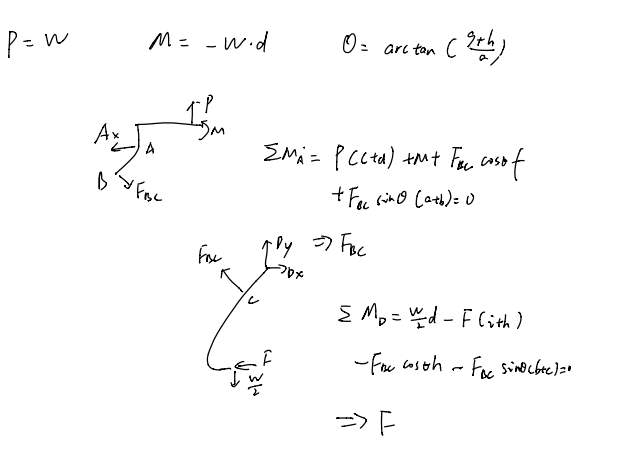 P = W M = -W·d θ = arctan (g+h/a)
P
M
Ax
A
B
F_BC
ΣM_A = P(c+d) + M + F_BC cosθ f
+ F_BC sinθ (a+b) = 0
F_BC
Dy
Dx
C
F
W/2
⇒ F_BC
Σ M_D = W/2 d - F(i+h)
- F_BC cosθ h - F_BC sinθ(b+c) = 0
⇒ F